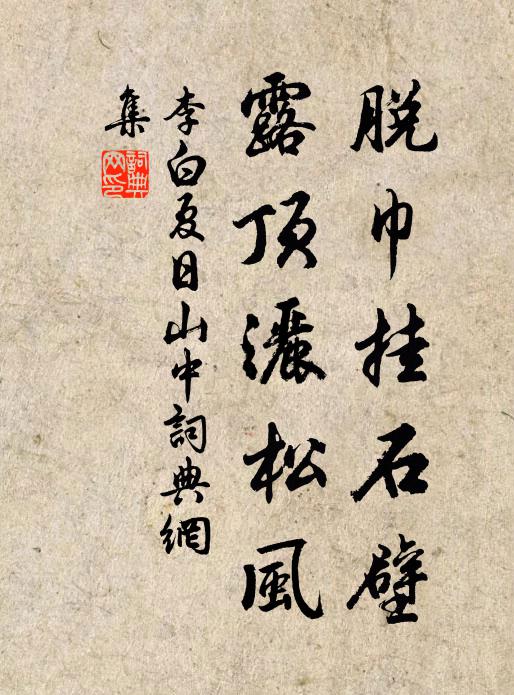 脫巾挂石壁
露頂灑松風
李白夏日山中詞典網
集
詞典
网印